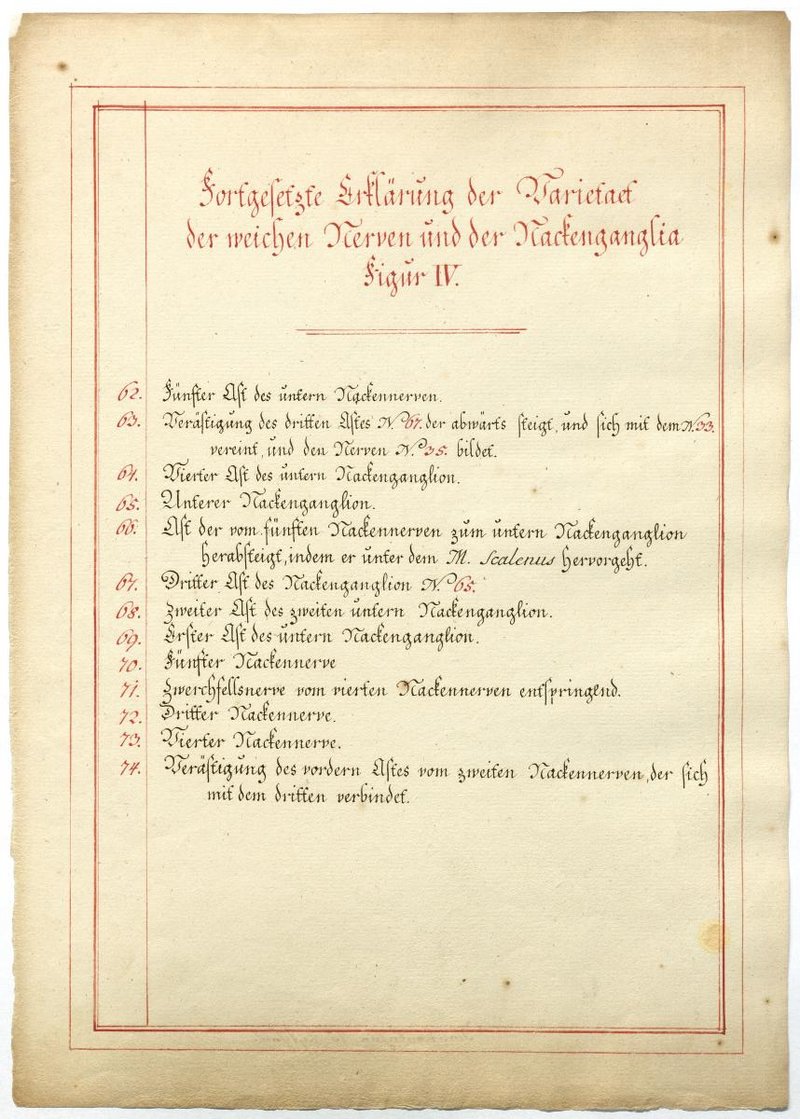 Fortgesetzte Erklärung der Varietaet
der weichen Nerven und der Nackenganglia
Figur IV.
62. Fünfter Ast des untern Nackennerven.
63. Verästigung des dritten Astes N.º 67. der abwärts steigt, und sich mit dem N. 33.
vereint, und den Nerven N.º 35. bildet.
64. Vierter Ast des untern Nackenganglion.
65. Unterer Nackenganglion.
66. Ast der vom fünften Nackennerven zum untern Nackenganglion
herabsteigt, indem er unter dem M. Scalenus hervorgeht.
67. Dritter Ast des Nackenganglion N.º 65.
68. Zweiter Ast des zweiten untern Nackenganglion.
69. Erster Ast des untern Nackenganglion.
70. Fünfter Nackennerve
71. Zwerchfellsnerve vom vierten Nackennerven entspringend.
72. Dritter Nackennerve.
73. Vierter Nackennerve.
74. Verästigung des vordern Astes vom zweiten Nackennerven, der sich
mit dem dritten verbindet.